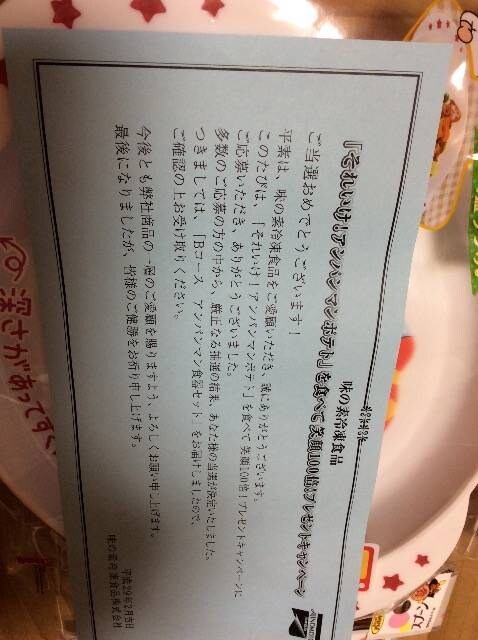 味の素冷凍食品
「それいけ!アンパンマンポテト」を食べて笑顔100倍!プレゼントキャンペーン
ご当選おめでとうございます!
平素は、味の素冷凍食品をご愛顧いただき、誠にありがとうございます。
このたびは、「それいけ!アンパンマンポテト」を食べて 笑顔100倍!プレゼントキャンペーンに
ご応募いただき、ありがとうございました。
多数のご応募の方の中から、厳正なる抽選の結果、あなた様の当選が決定いたしました。
つきましては、「Bコース アンパンマン食器セット」をお届けしましたので、
ご確認の上お受け取りください。
今後とも弊社商品の一層のご愛顧を賜りますよう、よろしくお願い申し上げます。
最後になりましたが、皆様のご健勝をお祈り申し上げます。
平成29年2月吉日
味の素冷凍食品株式会社
AJINOMOTO
深さがあってす
スプーン